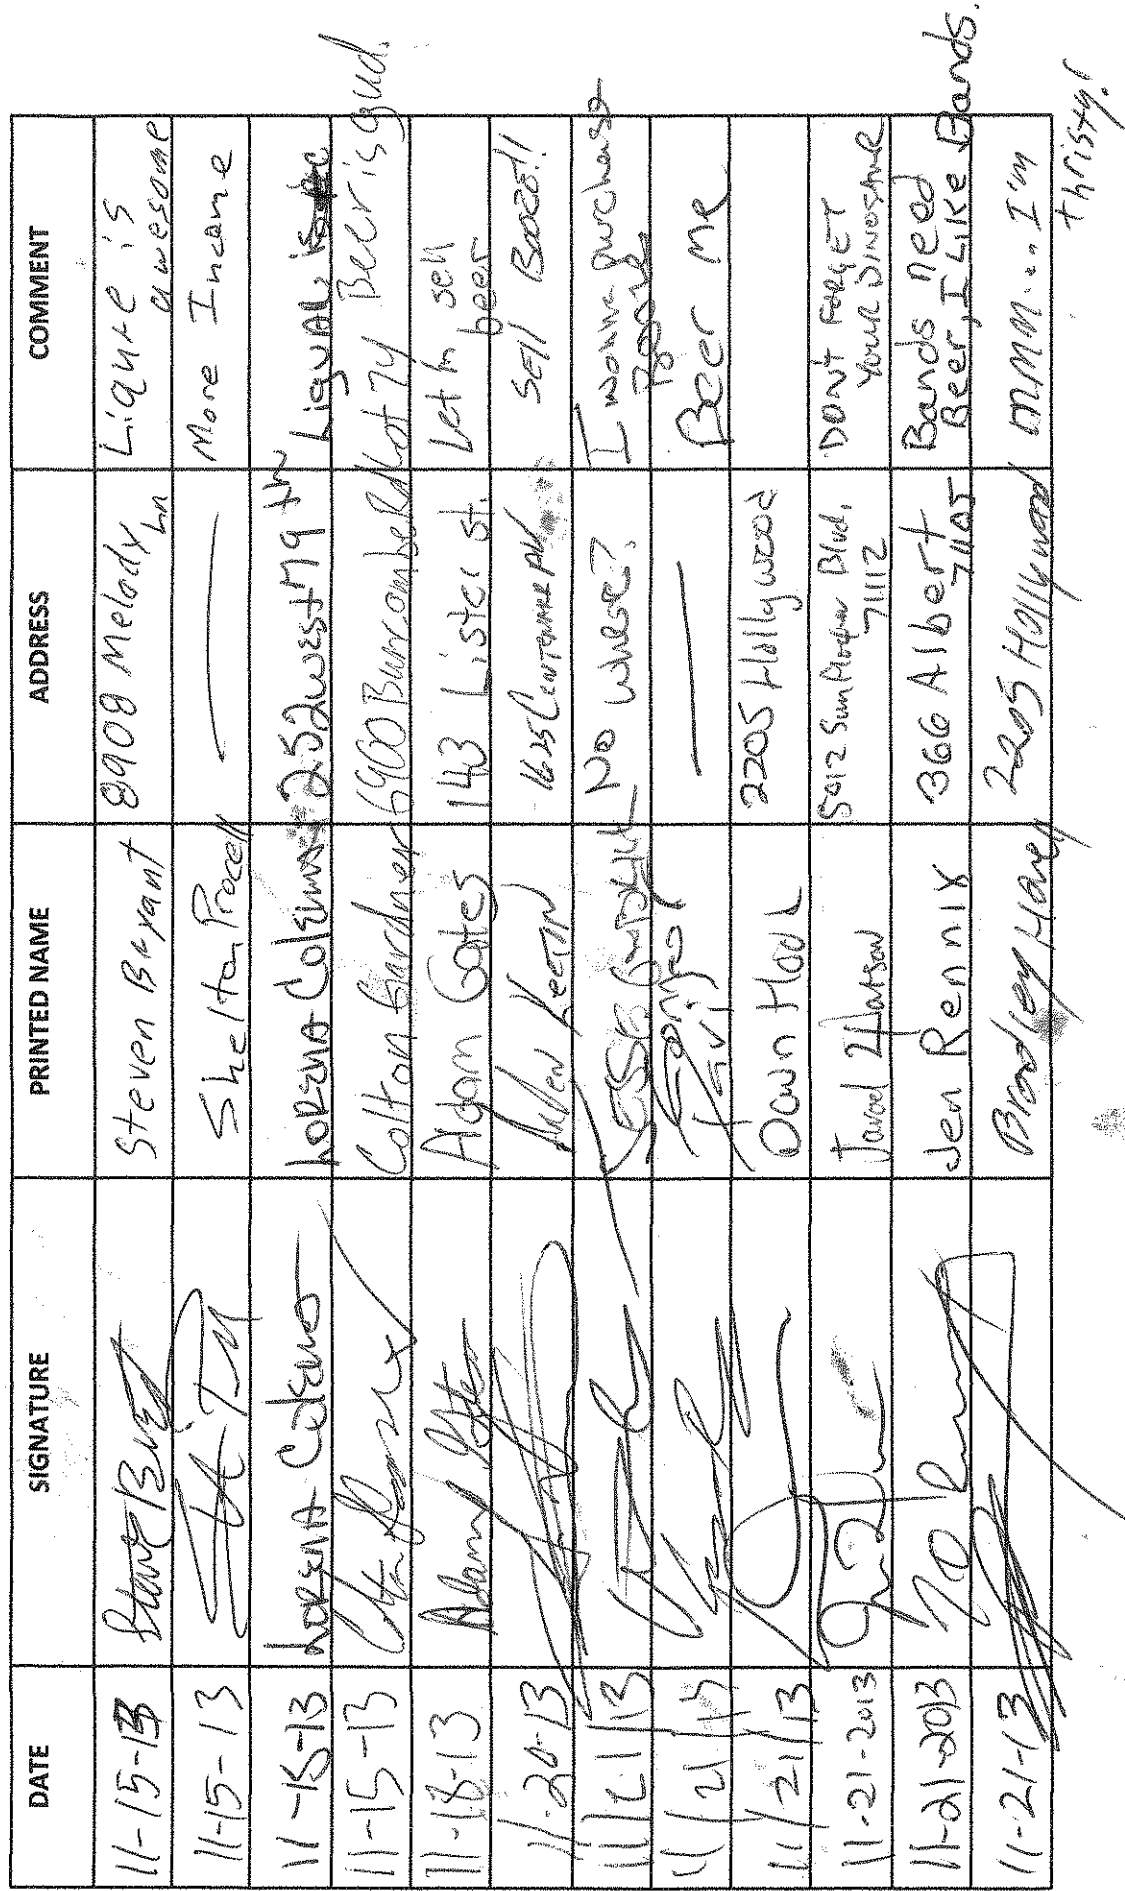 DATE SIGNATURE PRINTED NAME ADDRESS COMMENT
11-15-13 Steve Bryant Steven Bryant 8908 Melody Ln Liqure is awesome
11-15-13 Shelton Procell More Income
11-15-13 LORENA Coleman LORENA Coleman 252 west 79th Liquar is
11-15-13 Colton Gardner 6400 Buncombe Rd Lot 74 Beer is gud.
11-18-13 Adam Gates Adam Gates 143 Lister st. Let m sell beer
11-20-13 Keeton 1625 Centenary Sell Booze!!
11/21/13 No where? I wanna purchase
11/21/13 Beer me
11/21/13 Dawn Hood 2205 Hollywood
11-21-2013 Jared Watson 5012 Blvd, 71112 DONT FORGET YOUR DINOSAUR
11-21-2013 Jen Rennix 366 Albert 71105 Bands need Beer, I Like Bands.
11-21-13 Bradley 2205 Hollywood mmm... I'm thristy!